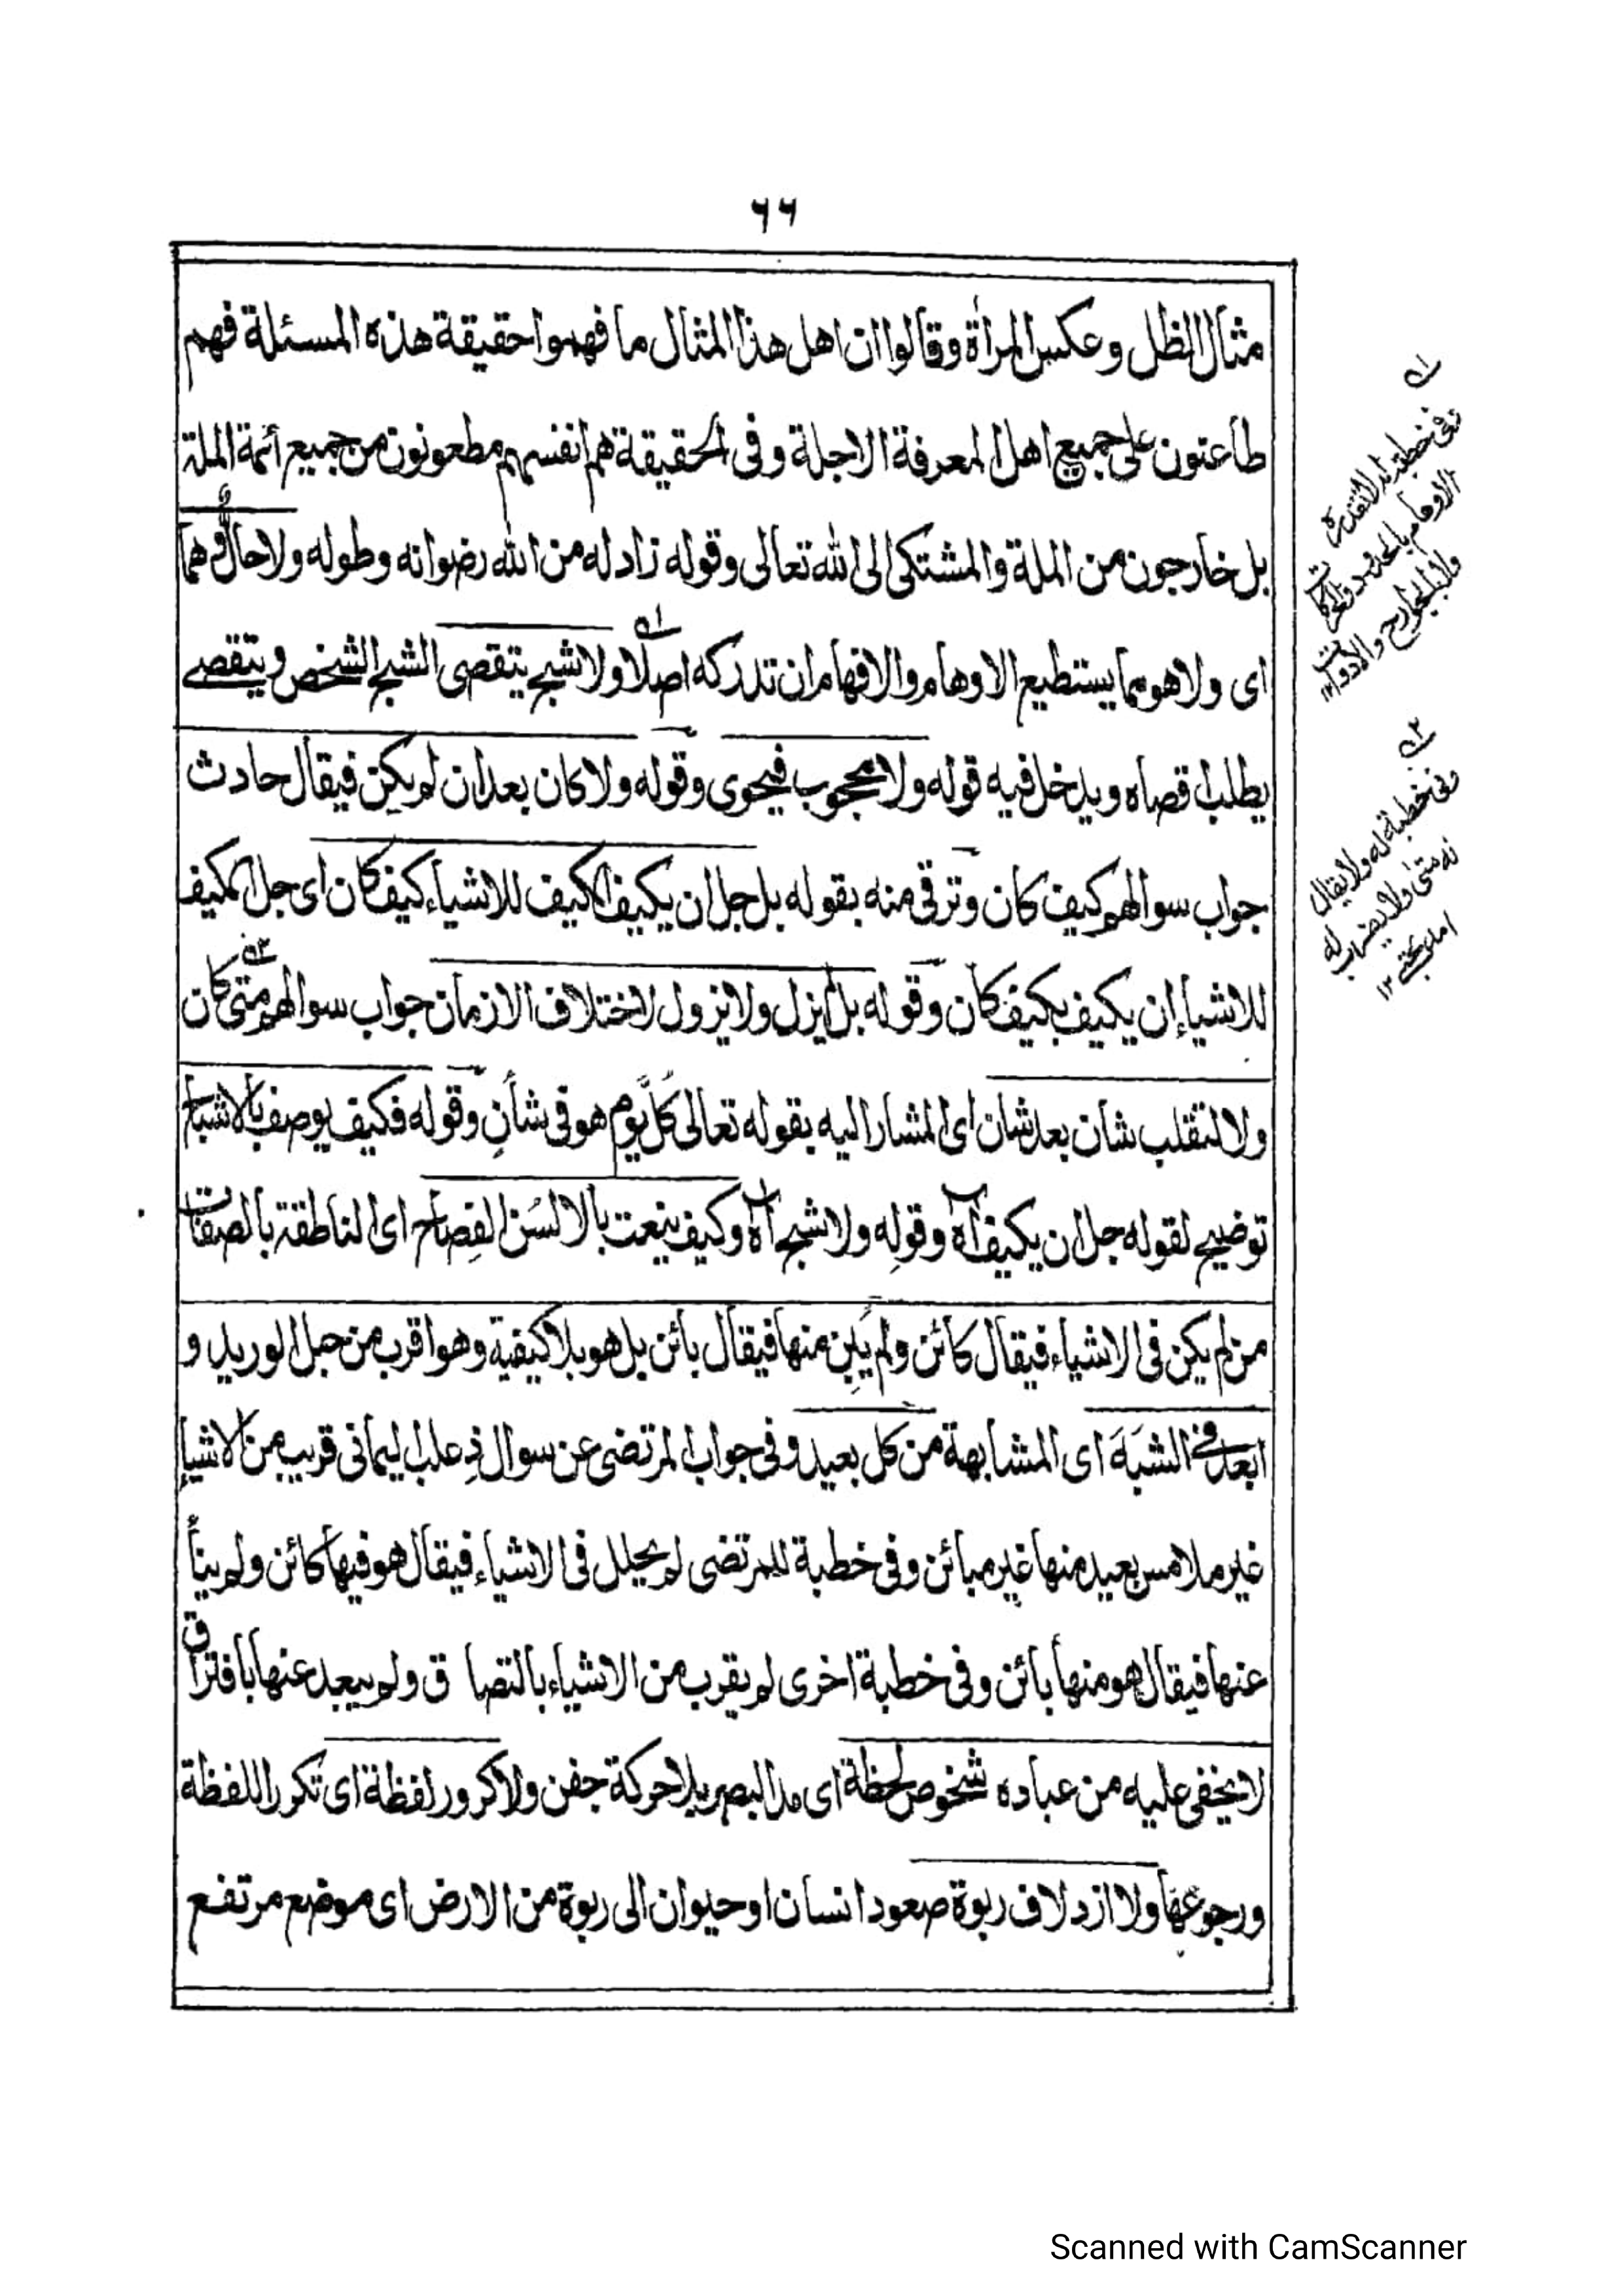 ٦٦
مثال الظل وعكس المرأة وقالوا ان اهل هذا المثال ما فهموا حقيقة هذه المسئلة فهم
طاعنون على جميع اهل المعرفة الاجلة وفى الحقيقة هم انفسهم مطعونون من جميع أئمة الملة
بل خارجون من الملة والمشتكى الى الله تعالى وقوله زاد له من الله رضوانه وطوله ولاحال فى هما
اى ولا هو مما يستطيع الاوهام والافهام ان تدركه اصلا ولا شبح يتقصى الشبح الشخص ويتقصى
يطلب اقصاه ويدخل فيه قوله ولا محجوب فيحوى وقوله ولا كان بعد ان لم يكن فيقال حادث
جواب سوالهم كيف كان وترقى منه بقوله بل جل ان يكيف المكيف للاشياء كيف كان اى جل المكيف
للاشياء ان يكيف بكيف كان وقوله بل لم يزل ولا يزول لاختلاف الازمان جواب سوالهم متى كان
ولا لتقلب شان بعد شان اى المشار اليه بقوله تعالى كُلَّ يَوم هو فى شأنٍ وقوله فكيف يوصف بالاشباح
توضيح لقوله جل ان يكيف آه وقوله ولا شبح آه وكيف ينعت بالالسُن الفِصاح اى الناطقة بالصفات
من لم يكن فى الاشياء فيقال كائن ولم يَبِن منها فيقال بائن بل هو بلا كيفية وهو اقرب من حبل الوريد و
ابعد فى الشبَهَ اى المشابهة من كل بعيد وفى جواب المرتضى عن سوال ذعلب اليمانى قريب من الاشياء
غير ملامس بعيد منها غير مبائن وفى خطبة للمرتضى لم يحلل فى الاشياء فيقال هو فيها كائن ولم ينأ
عنها فيقال هو منها بائن وفى خطبة اخرى لم يقرب من الاشياء بالتصاق ولم يبعد عنها بافتراق
لا يخفى عليه من عباده شخوص لحظة اى مد البصر بلا حركة جفن ولا كرور لفظة اى تكرر اللفظة
ورجوعها ولا ازدلاف ربوة صعود انسان او حيوان الى ربوة من الارض اى موضع مرتفع
وفى خطبة له لا تقدره
الاوهام بالحدود والحركات
ولا بالجوارح والادوات ١٢
وفى خطبة له ولا يقال
له متى ولا يضرب له
امد بحتى ١٢
Scanned with CamScanner